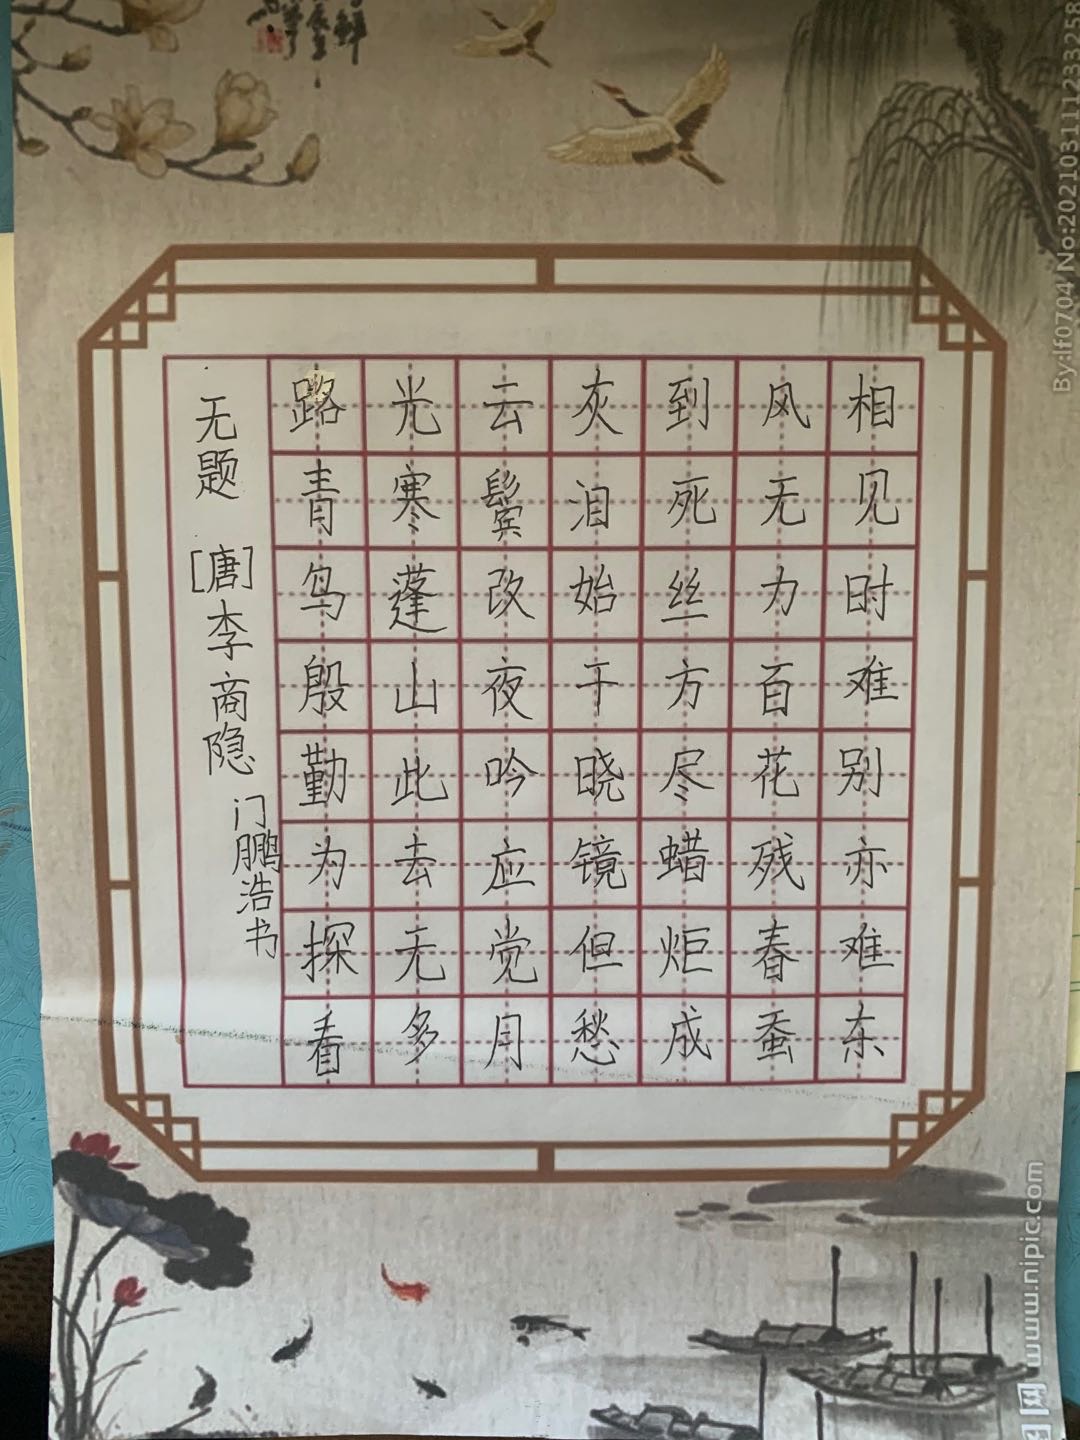 相见时难别亦难东
风无力百花残春蚕
到死丝方尽蜡炬成
灰泪始干晓镜但愁
云鬓改夜吟应觉月
光寒蓬山此去无多
路青鸟殷勤为探看
无题 [唐]李商隐
门鹏浩书
By:lf0704 No:20210311123258
www.nipic.com